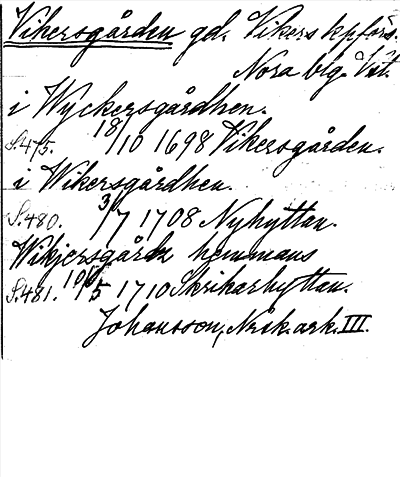 Vikersgården gd. Vikers kpförs.
Nora blg. Vstl.
i Wyckersgårdhen.
S.475. 18/10 1698 Vikersgården.
i Wikersgårdhen.
S.480. 3/7 1708 Nyhyttan.
Wikjersgårdz hemmans
S.481. 10/5 1710 Skrikarhyttan.
Johansson, Nrsk. ark. III.